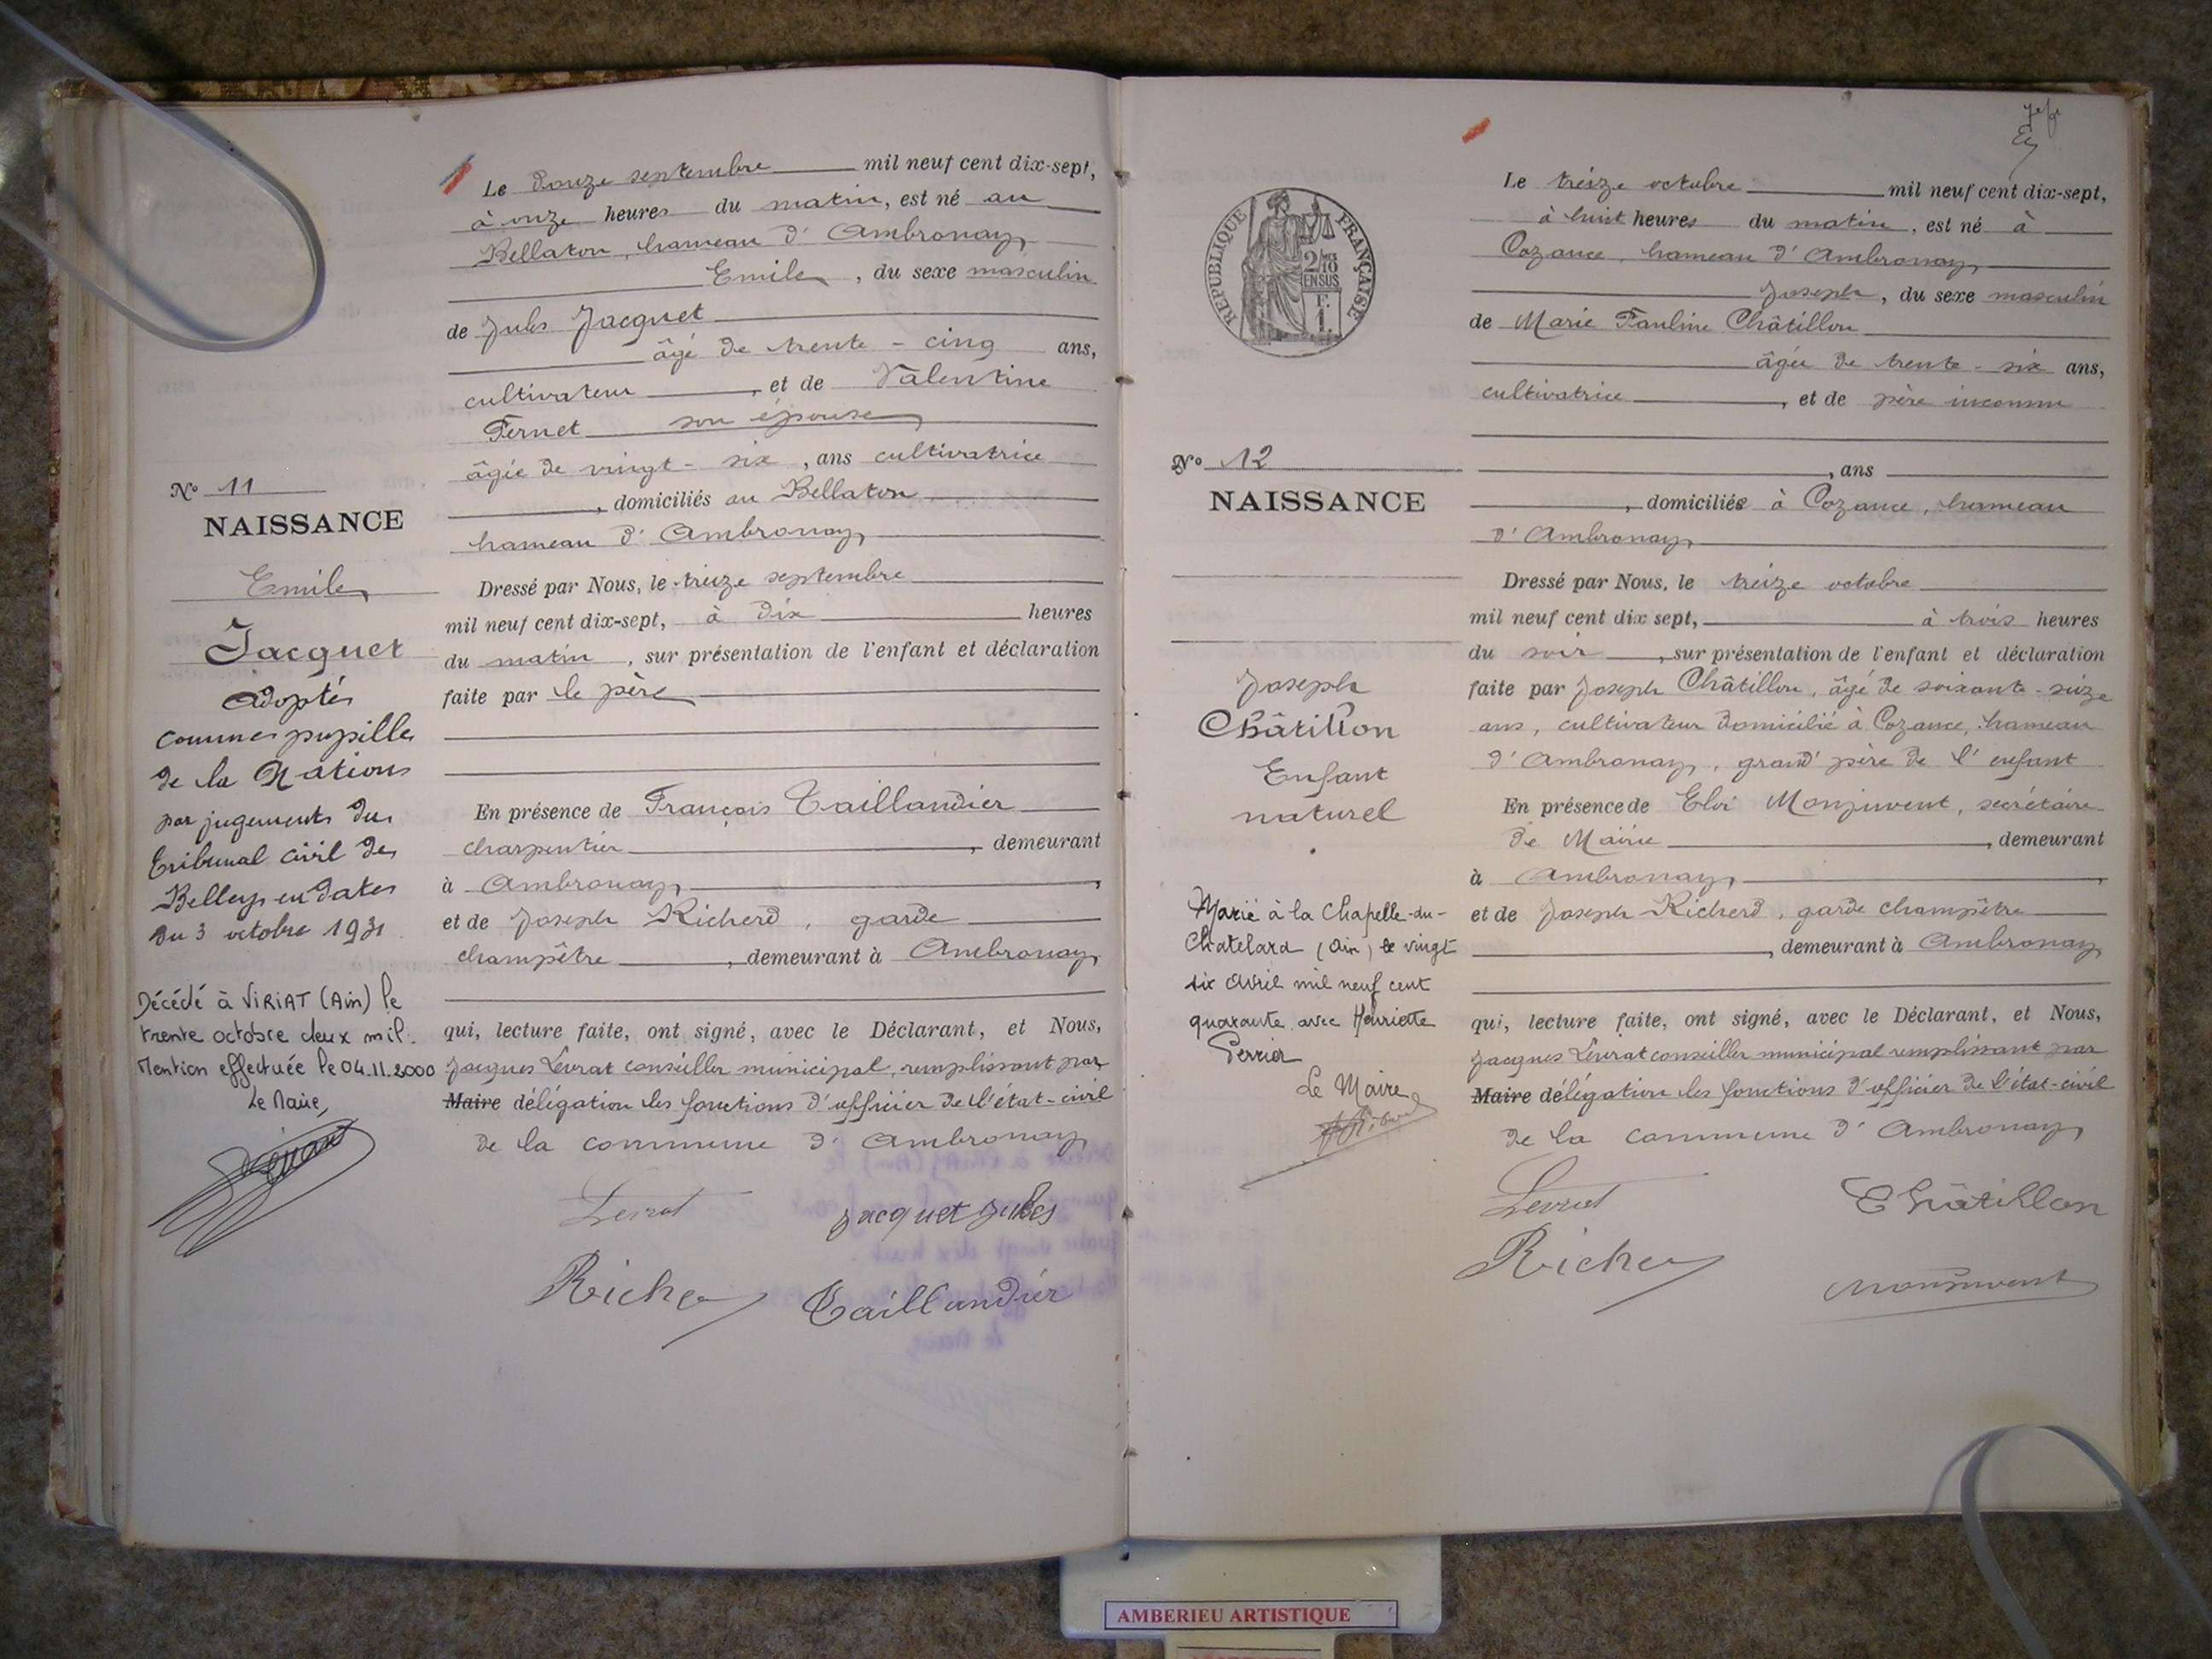 Le douze septembre mil neuf cent dix-sept,
à onze heures du matin, est né au
Bellaton, hameau d'Ambronay,
Emile, du sexe masculin
de Jules Jacquet
âgé de trente-cinq ans,
cultivateur, et de Valentine
Fernet son épouse
âgée de vingt-six, ans cultivatrice
, domiciliés au Bellaton
hameau d'Ambronay,
Dressé par Nous, le treize septembre
mil neuf cent dix-sept, à dix heures
du matin, sur présentation de l'enfant et déclaration
faite par le père
En présence de François Taillandier
charpentier, demeurant
à Ambronay,
et de Joseph Richerd, garde
champêtre, demeurant à Ambronay,
qui, lecture faite, ont signé, avec le Déclarant, et Nous,
Jacques Levrat conseiller municipal, remplissant par
Maire délégation les fonctions d'officier de l'état-civil
de la commune d'Ambronay,
Levrat Jacquet Jules
Richer Taillandier
N° 11
NAISSANCE
Emile
Jacquet
Adopté
comme pupille
de la Nation
par jugement du
Tribunal civil de
Belley en date
du 3 octobre 1931
Décédé à VIRIAT (Ain) le
trente octobre deux mil.
Mention effectuée le 04.11.2000
Le Maire,
REPUBLIQUE FRANÇAISE
2/10
EN SUS
1 F.
N° 12
NAISSANCE
Joseph
Châtillon
Enfant
naturel
Marié à la Chapelle-du-
Chatelard (Ain) le vingt
six avril mil neuf cent
quarante avec Henriette
Perrier
Le Maire
Le treize octobre mil neuf cent dix-sept,
à huit heures du matin, est né à
Cozance, hameau d'Ambronay,
Joseph, du sexe masculin
de Marie Pauline Châtillon
âgée de trente-six ans,
cultivatrice, et de père inconnu
, ans
, domiciliée à Cozance, hameau
d'Ambronay,
Dressé par Nous, le treize octobre
mil neuf cent dix sept, à trois heures
du soir, sur présentation de l'enfant et déclaration
faite par Joseph Châtillon, âgé de soixante-seize
ans, cultivateur domicilié à Cozance, hameau
d'Ambronay, grand'père de l'enfant
En présence de Eloi Monjuvent, secrétaire
de Mairie, demeurant
à Ambronay,
et de Joseph Richerd, garde champêtre
, demeurant à Ambronay
qui, lecture faite, ont signé, avec le Déclarant, et Nous,
Jacques Levrat conseiller municipal remplissant par
Maire délégation les fonctions d'officier de l'état-civil
de la commune d'Ambronay,
Levrat Châtillon
Richer Monjuvent
AMBERIEU ARTISTIQUE